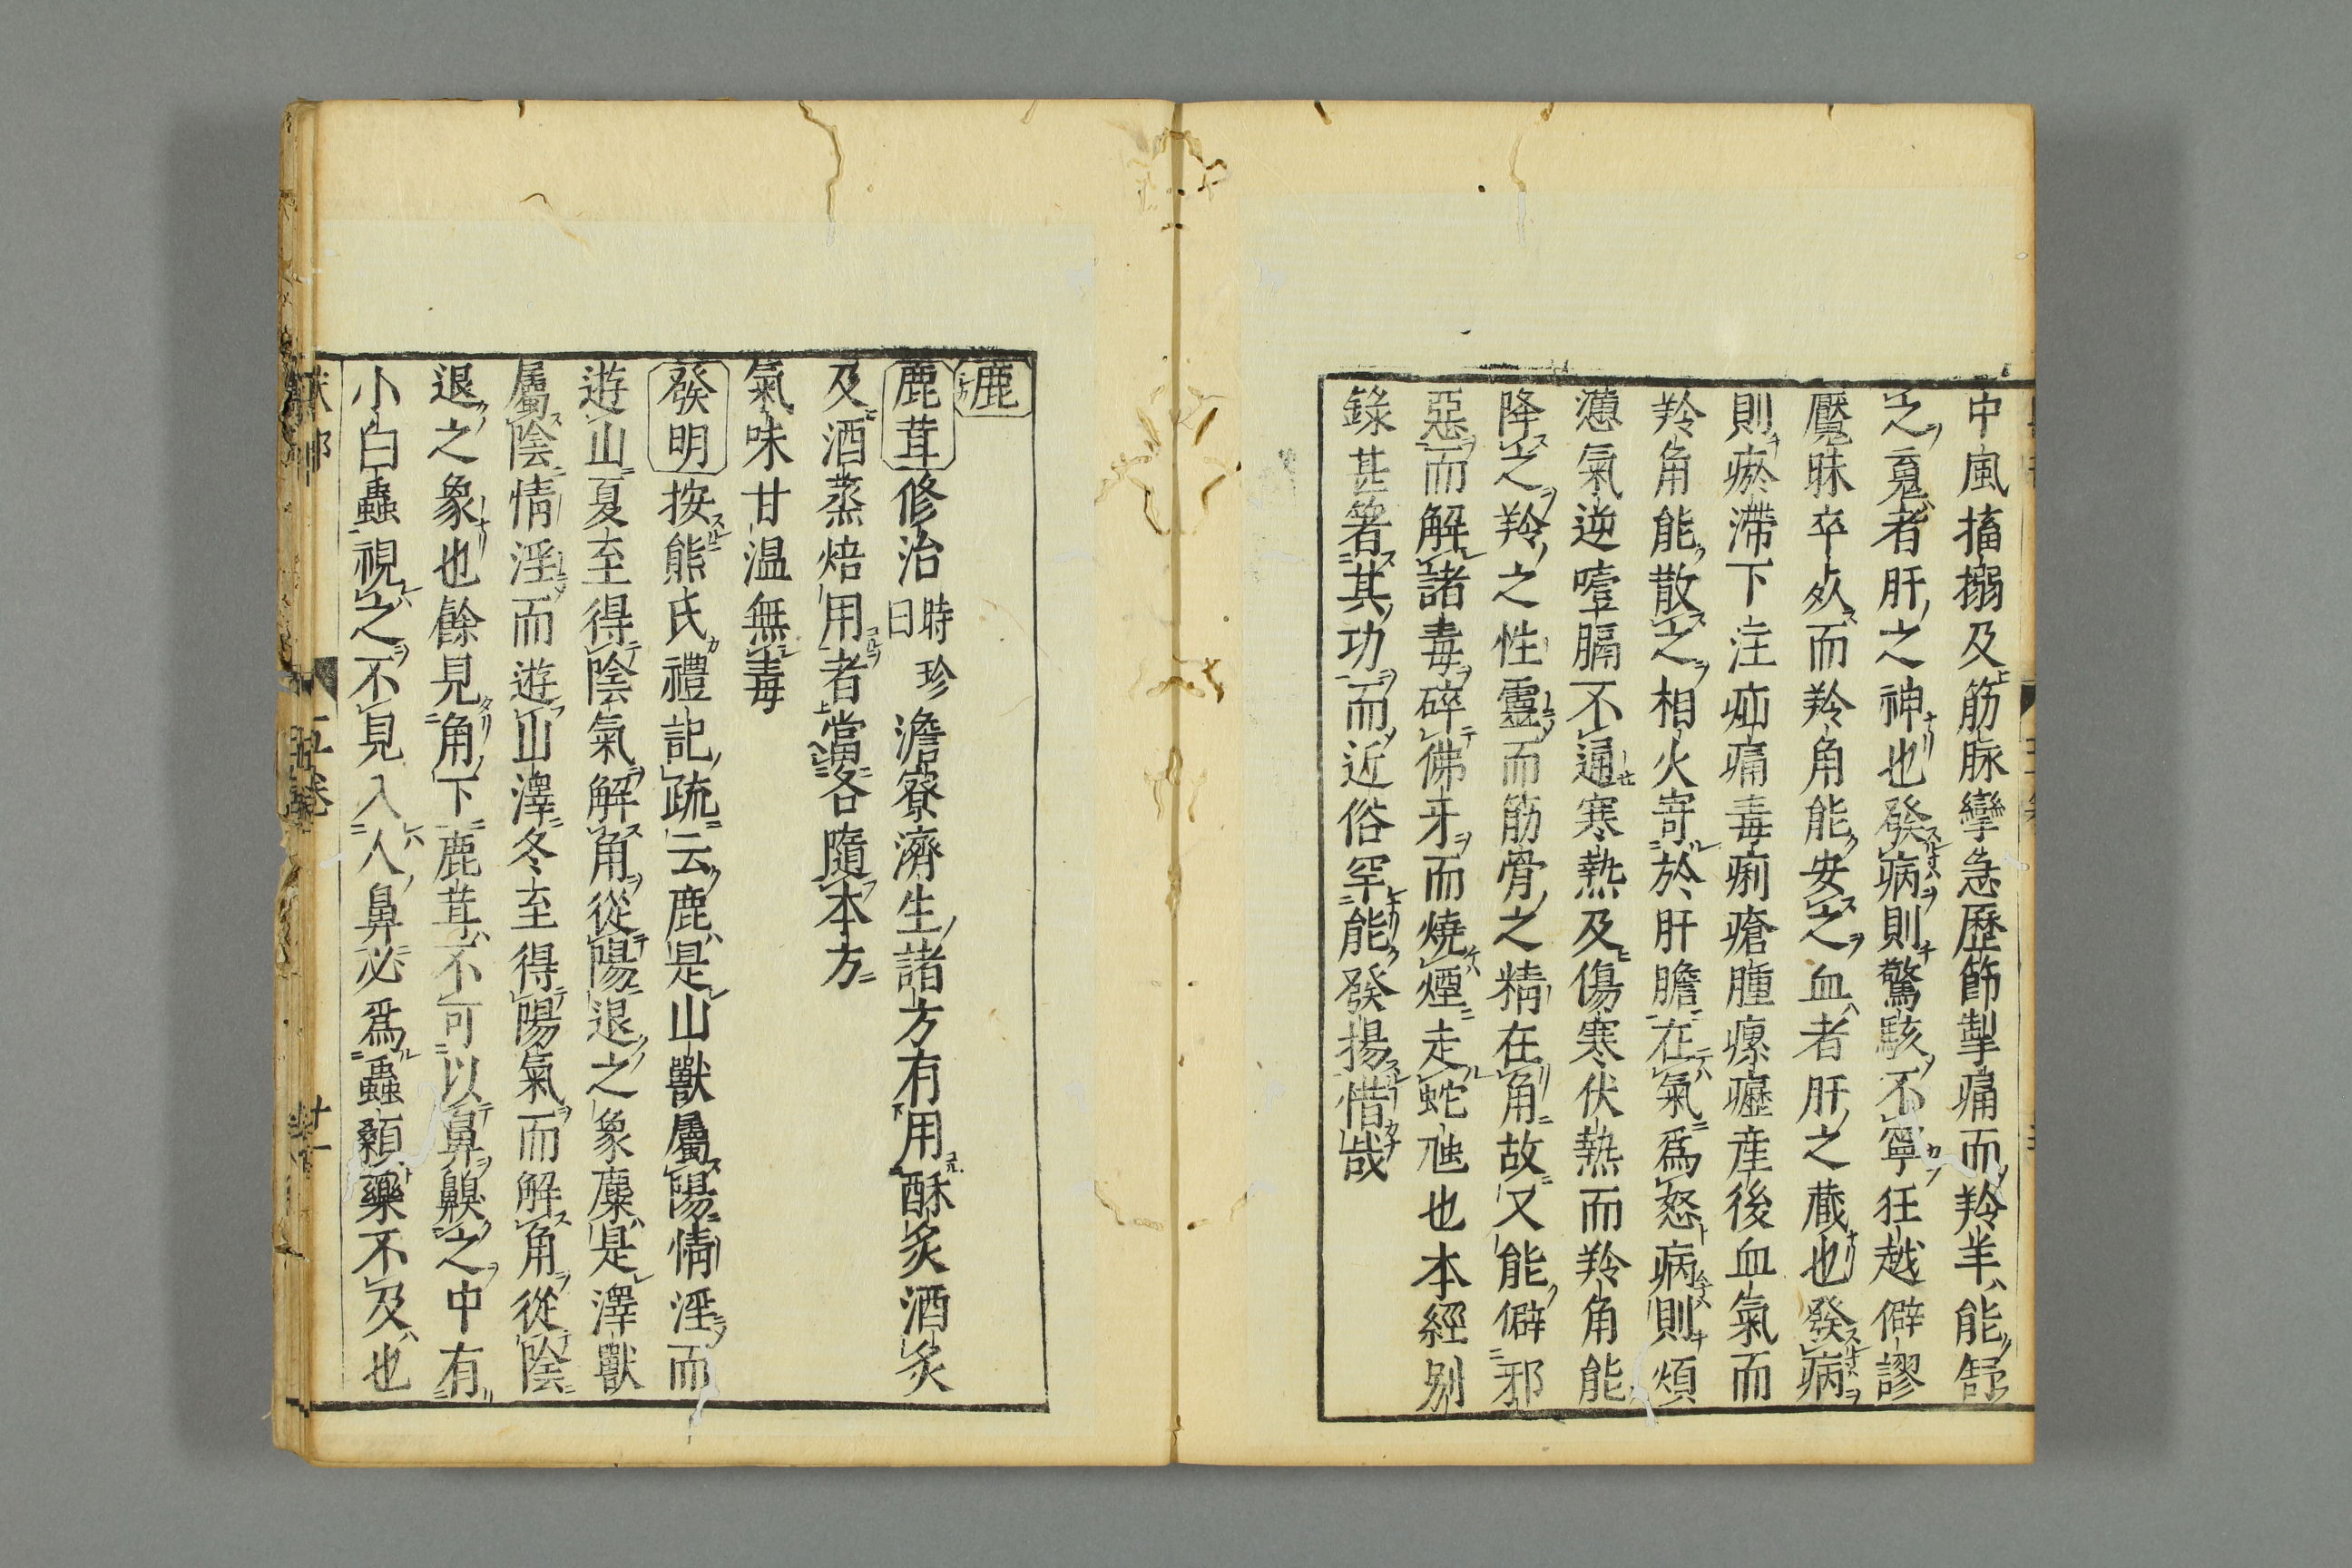 中風搐搦及筋脉攣急歷節掣痛而羚羊能舒
之䰟者肝之神也發病則驚駭不寧狂越僻謬
魘寐卒死而羚角能安之血者肝之藏也發病
則瘀滯下注疝痛毒痢瘡腫瘰癧産後血氣而
羚角能散之相火寄於肝膽在氣爲怒病則煩
懣氣逆噎膈不通寒熱及傷寒伏熱而羚角能
降之羚之性靈而筋骨之精在角故又能僻邪
惡而解諸毒碎佛牙而燒煙走蛇虺也本經別
錄甚著其功而近俗罕能發揚惜哉
鹿
鹿茸修治時珍曰澹寮濟生諸方有用酥炙酒炙
及酒蒸焙用者當各隨本方
氣味甘温無毒
發明按熊氏禮記疏云鹿是山獸屬陽情淫而
遊山夏至得陰氣解角從陽退之象麋是澤獸
屬陰情淫而遊山澤冬至得陽氣而解角從陰
退之象也餘見角下鹿茸不可以鼻齅之中有
小白蟲視之不見入人鼻必爲蟲顙藥不及也
五卷
廿一